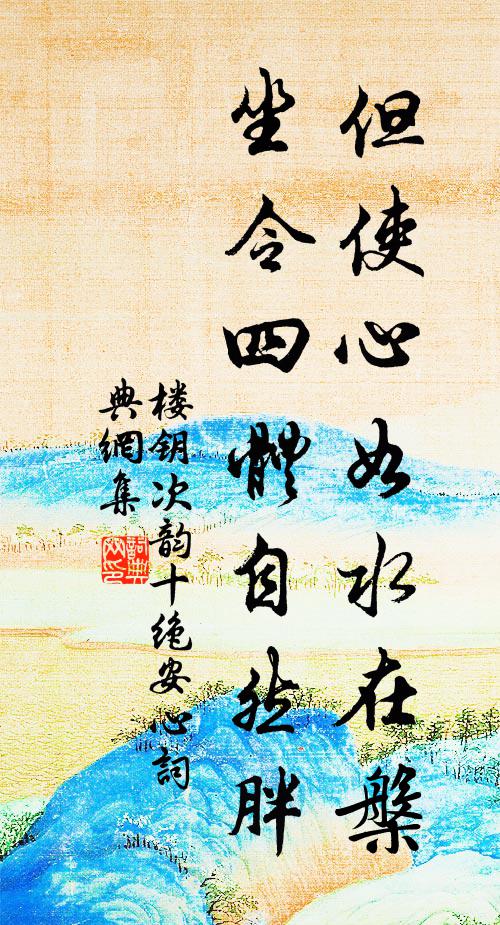 但使心如水在槃
坐令四體自然胖
楼钥次韵十绝安心詞
典網集
詞典網印